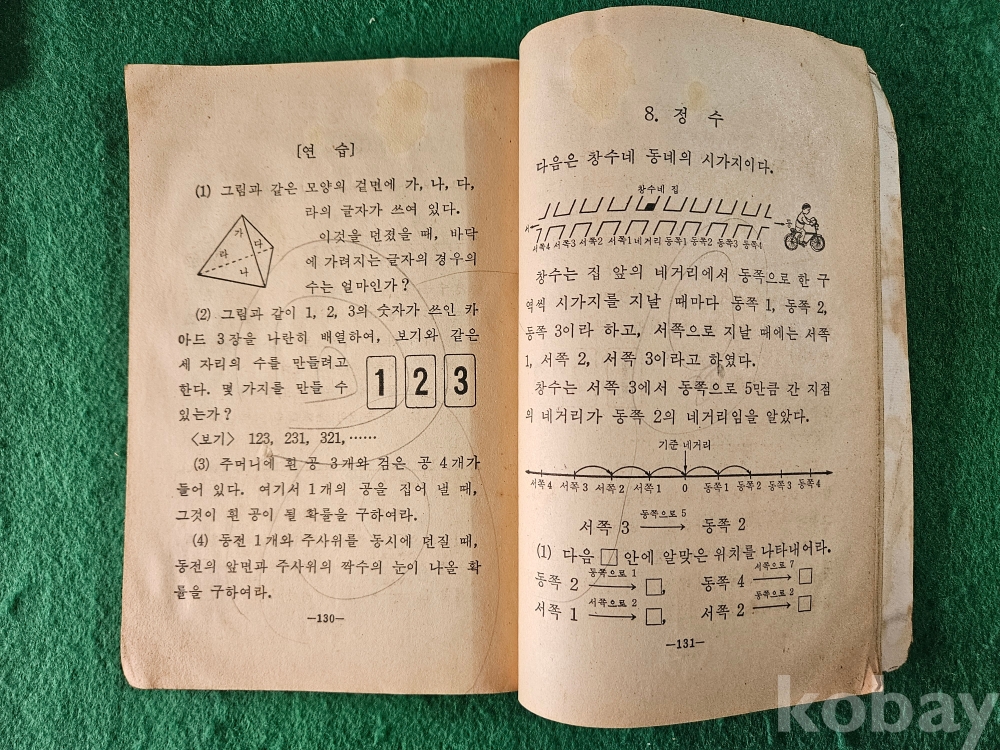 [연 습]
(1) 그림과 같은 모양의 겉면에 가, 나, 다,
라의 글자가 쓰여 있다.
이것을 던졌을 때, 바닥
에 가려지는 글자의 경우의
수는 얼마인가?
가
다
라
나
(2) 그림과 같이 1, 2, 3의 숫자가 쓰인 카
아드 3장을 나란히 배열하여, 보기와 같은
세 자리의 수를 만들려고
한다. 몇 가지를 만들 수
있는가?
1 2 3
〈보기〉 123, 231, 321, ……
(3) 주머니에 흰 공 3개와 검은 공 4개가
들어 있다. 여기서 1개의 공을 집어 낼 때,
그것이 흰 공이 될 확률을 구하여라.
(4) 동전 1개와 주사위를 동시에 던질 때,
동전의 앞면과 주사위의 짝수의 눈이 나올 확
률을 구하여라.
—130—
8. 정 수
다음은 창수네 동네의 시가지이다.
창수네 집
서 동
서쪽4 서쪽3 서쪽2 서쪽1 네거리 동쪽1 동쪽2 동쪽3 동쪽4
창수는 집 앞의 네거리에서 동쪽으로 한 구
역씩 시가지를 지날 때마다 동쪽 1, 동쪽 2,
동쪽 3이라 하고, 서쪽으로 지날 때에는 서쪽
1, 서쪽 2, 서쪽 3이라고 하였다.
창수는 서쪽 3에서 동쪽으로 5만큼 간 지점
의 네거리가 동쪽 2의 네거리임을 알았다.
기준 네거리
서쪽4 서쪽3 서쪽2 서쪽1 0 동쪽1 동쪽2 동쪽3 동쪽4
서쪽 3 동쪽으로 5 → 동쪽 2
(1) 다음 □ 안에 알맞은 위치를 나타내어라.
동쪽 2 동쪽으로 1 → □, 동쪽 4 서쪽으로 7 → □
서쪽 1 서쪽으로 2 → □, 서쪽 2 동쪽으로 2 → □
—131—
kobay